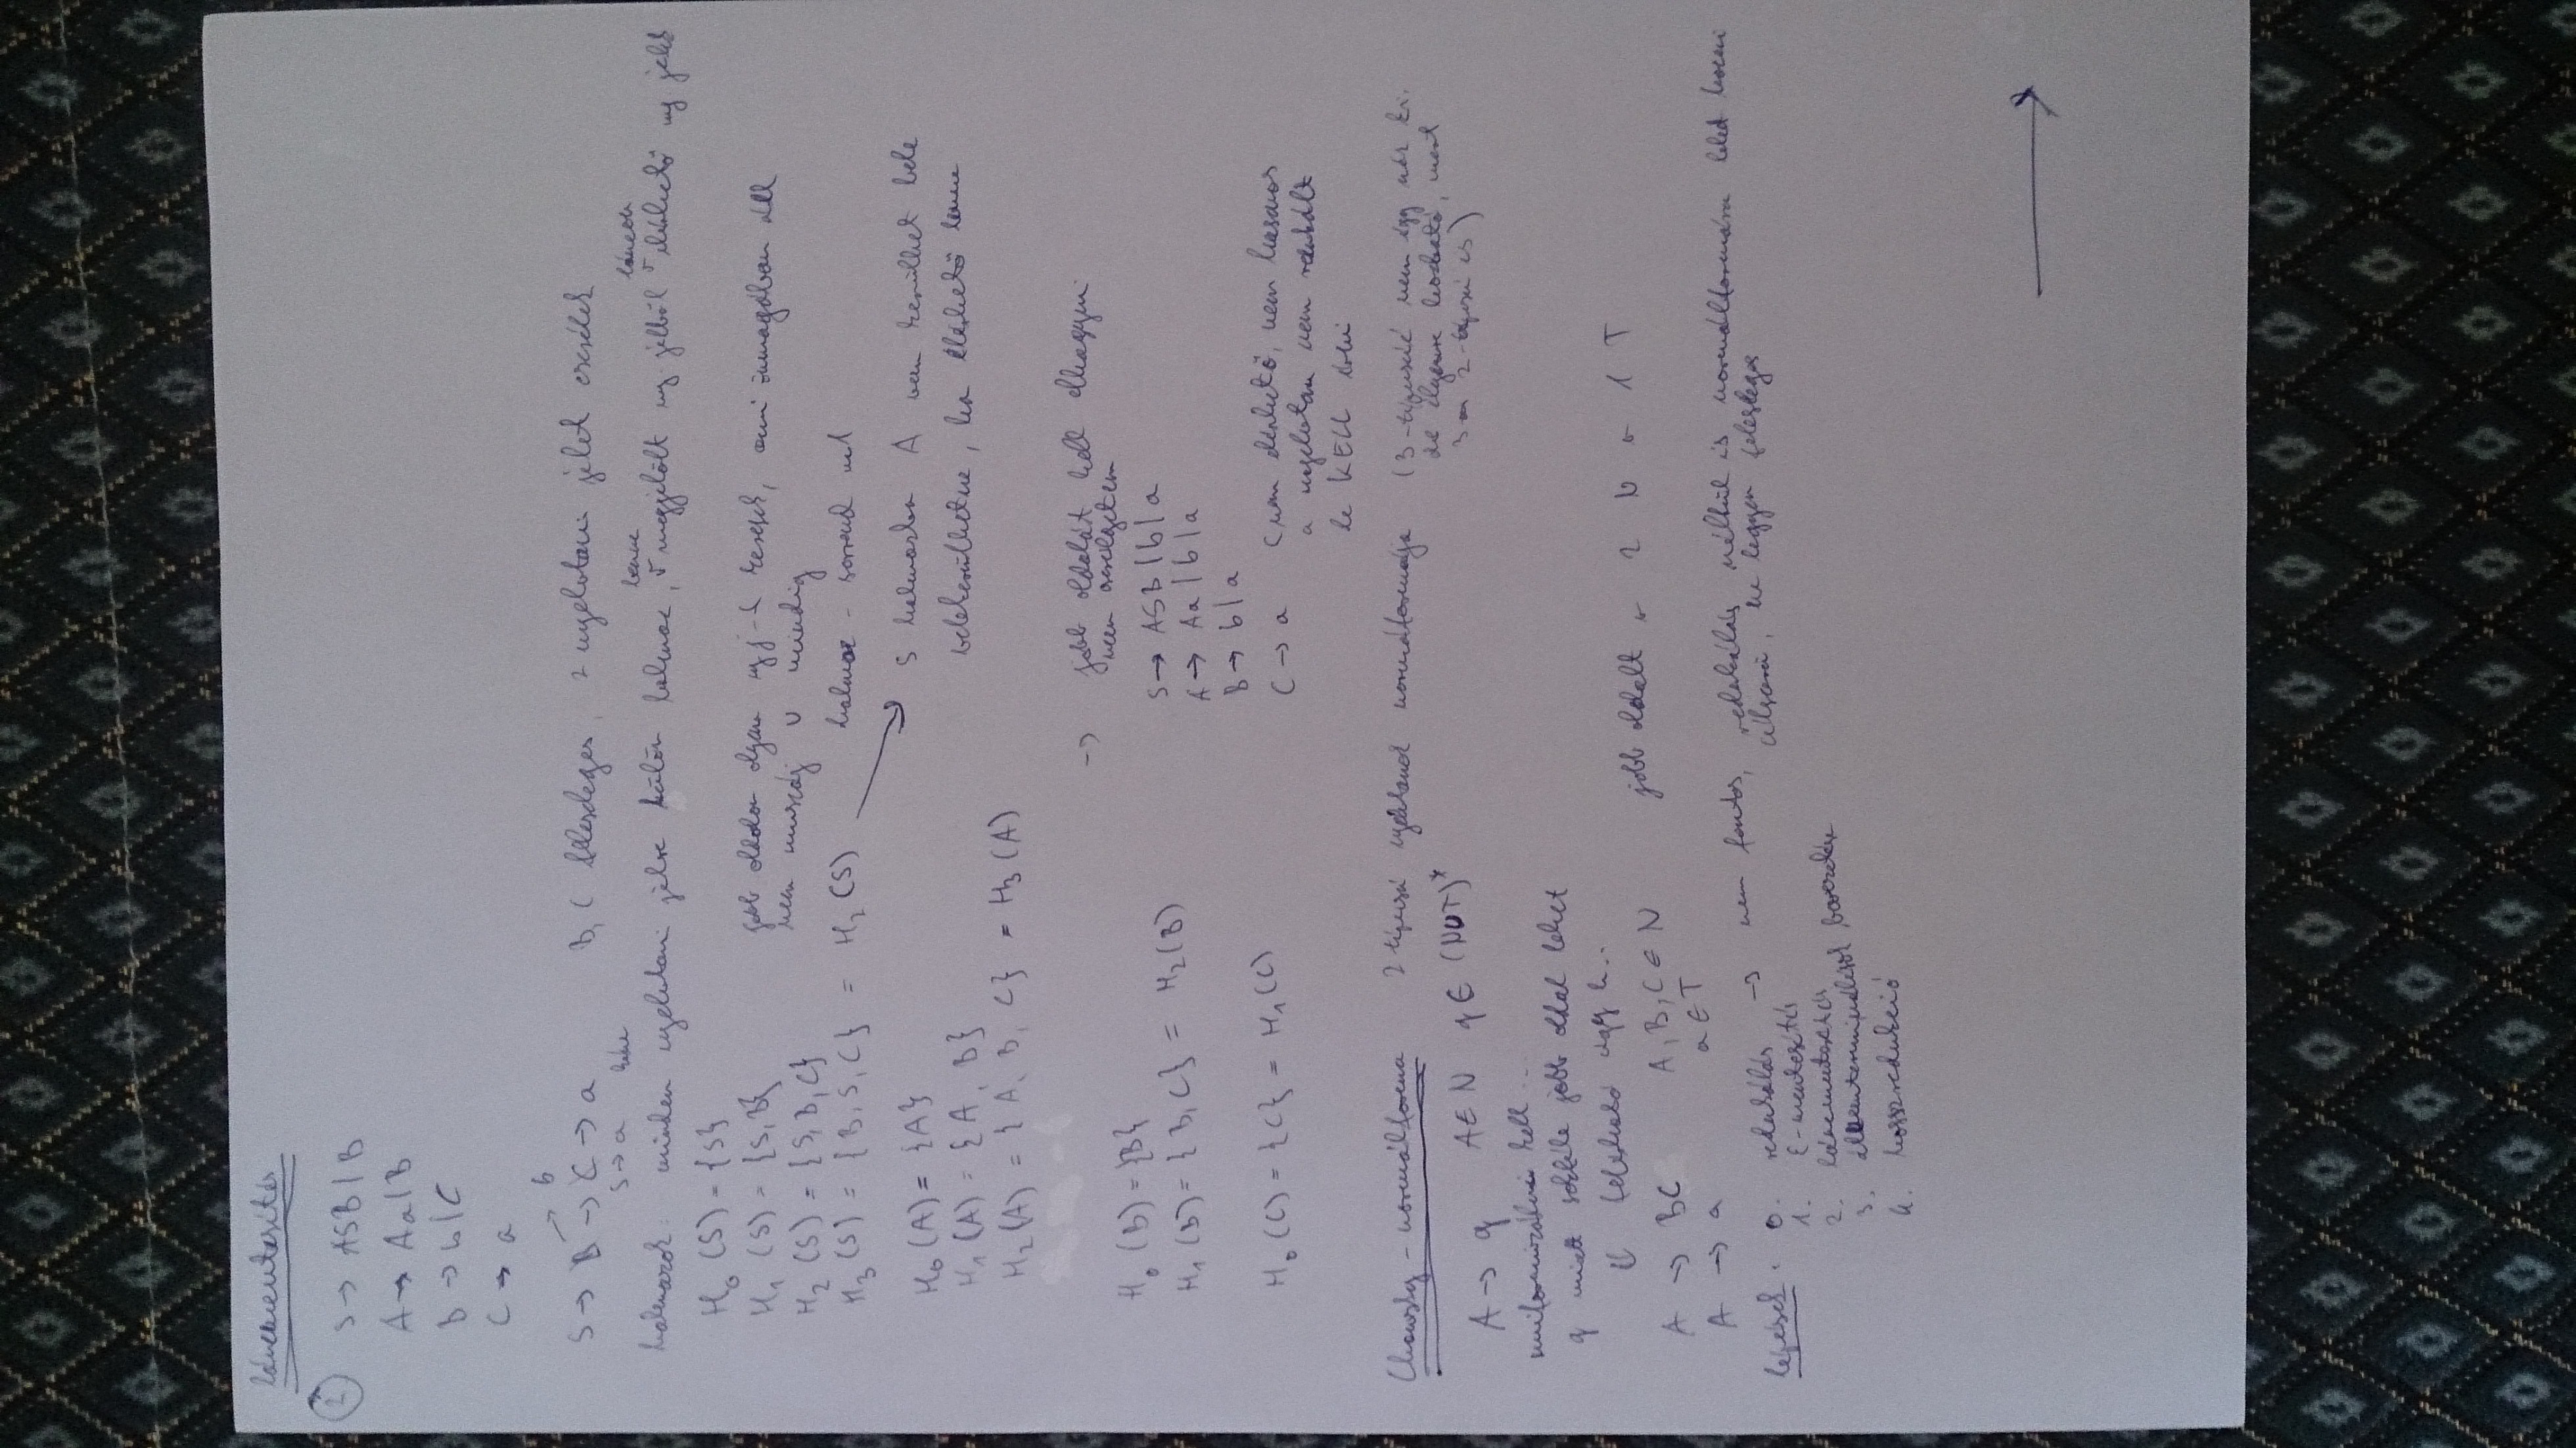 láncmentesítés
2
S → ASB | B
A → Aa | B
B → b | C
C → a
b
S → B → C → a B, C felesleges, 2 nyelvtani jelet cserélek
S → a
halmazok: minden nyelvtani jelre külön halmaz, benne megjelölt ny. jelből láncon elérhető ny. jelek
H₀ (S) = {S}
H₁ (S) = {S, B} jobb oldalon olyan nyj-t keresek, ami önmagában áll
nem muszáj ∪ mindig
H₂ (S) = {S, B, C}
H₃ (S) = {B, S, C} = H₂ (S) halmaz - sorrend
S halmazba A nem kerülhet bele
belekerülhetne, ha elérhető lenne
H₀ (A) = {A}
H₁ (A) = {A, B}
H₂ (A) = {A, B, C} = H₃ (A)
→ jobb oldalát kell elhagyni
nem cserélgetem
H₀ (B) = {B}
H₁ (B) = {B, C} = H₂ (B)
S → ASB | b | a
A → Aa | b | a
B → b | a
H₀ (C) = {C} = H₁ (C)
C → a C nem elérhető, nem hasznos
a nyelvtan nem redukált
de KELL írni
Chomsky - normálforma 2 típusú nyelvtanok normálformája (3-típusúé nem így néz ki.
de ilyenre hozható, mert
3-as 2-típusú is)
A → q A ∈ N q ∈ (N∪T)*
uniformizálni kell ...
q miatt sokféle jobb oldal lehet
⇓ felírható úgy h..
A → BC A, B, C ∈ N jobb oldalt v 2 N v 1 T
A → a a ∈ T
lépések: 0. redukálás → nem fontos, redukálás nélkül is normálformára lehet hozni
célszerű, ne legyen felesleges
1. ε-mentesítés
2. láncmentesítés
3. álnemterminálisok bevezetése
4. hosszredukció